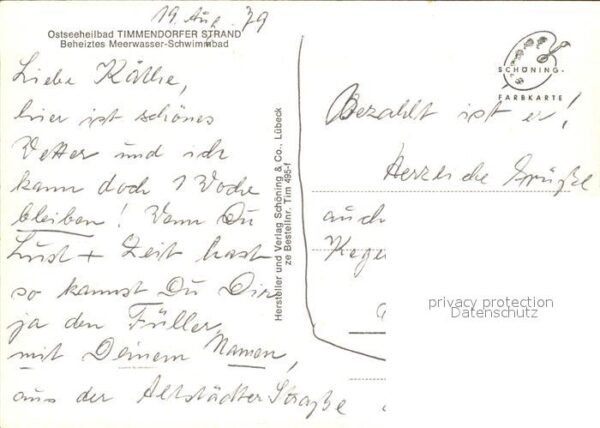 19. Aug. 79
Ostseeheilbad TIMMENDORFER STRAND
Beheiztes Meerwasser-Schwimmbad
Liebe Käthe,
hier ist schönes
Wetter und ich
kann doch 1 Woche
bleiben! Wenn Du
Lust + Zeit hast
so kannst Du Dir
ja den Füller,
mit Deinem Namen,
aus der Altstädter Straße
Hersteller und Verlag Schöning & Co., Lübeck
ze Bestellnr. Tim 495-f
SCHÖNING
FARBKARTE
Bezahlt ist er!
Herzliche Grüße
auch
Kege
privacy protection
Datenschutz